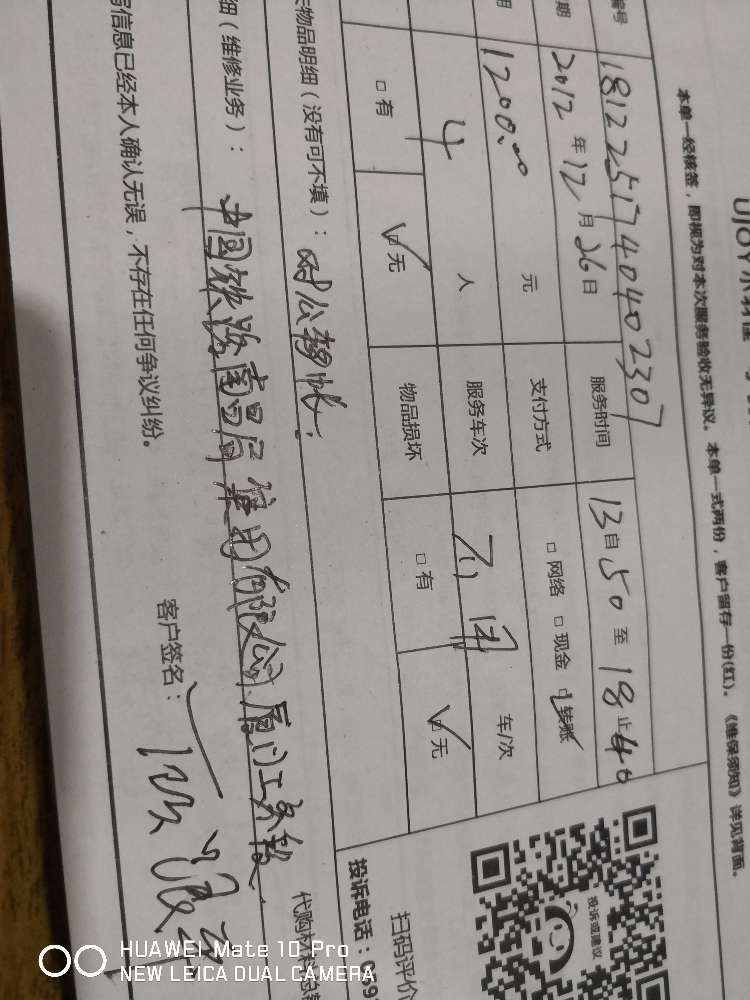 UJOY
本单一经核签，即视为对本次服务验收无异议。本单一式两份，客户留存一份(红)。《维保须知》详见背面。
编号 181225174040402307
期 2012年12月26日 服务时间 13自50至18止40
用 1200.00 元 支付方式 □网络 □现金 ☑转账
4 人 服务车次 车/次
□有 ☑无 物品损坏 □有 ☑无
物品明细（没有可不填）：对公移帐
细（维修业务）：中国铁路南昌局集团有限公司厦门工务段
信息已经本人确认无误，不存在任何争议纠纷。
客户签名：
代购材料
扫码评价
投诉电话：
投诉或建议
HUAWEI Mate 10 Pro
NEW LEICA DUAL CAMERA